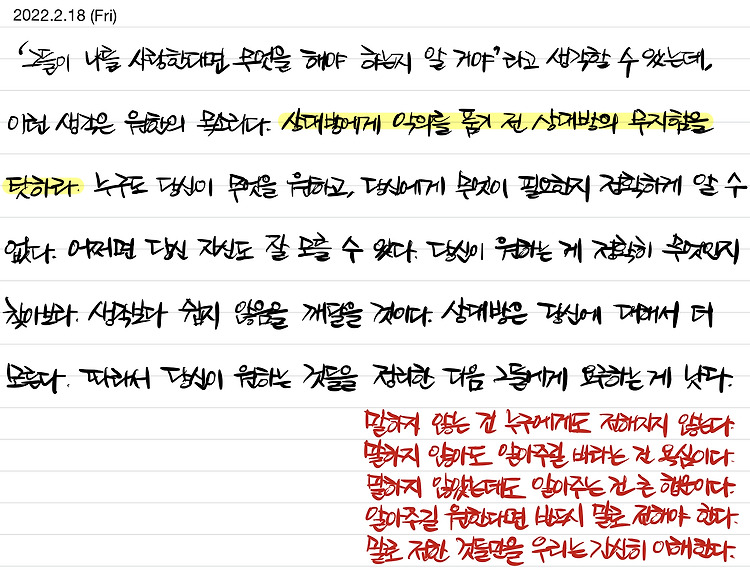 2022.2.18 (Fri)
'그들이 나를 사랑한다면 무엇을 해야 하는지 알 거야'라고 생각할 수 있는데,
이런 생각은 원한의 목소리다. 상대방에게 악의를 품기 전 상대방의 무지함을
탓하라. 누구도 당신이 무엇을 원하고, 당신에게 무엇이 필요한지 정확하게 알 수
없다. 어쩌면 당신 자신도 잘 모를 수 있다. 당신이 원하는 게 정확히 무엇인지
찾아보라. 생각보다 쉽지 않음을 깨달을 것이다. 상대방은 당신에 대해서 더
모른다. 따라서 당신이 원하는 것들을 정리한 다음 그들에게 요구하는 게 낫다.
말하지 않는 건 누구에게도 전해지지 않는다.
말하지 않아도 알아주길 바라는 건 욕심이다.
말하지 않았는데도 알아주는 건 큰 행운이다.
알아주길 원한다면 반드시 말로 전해야 한다.
말로 전한 것들만을 우리는 간신히 이해한다.